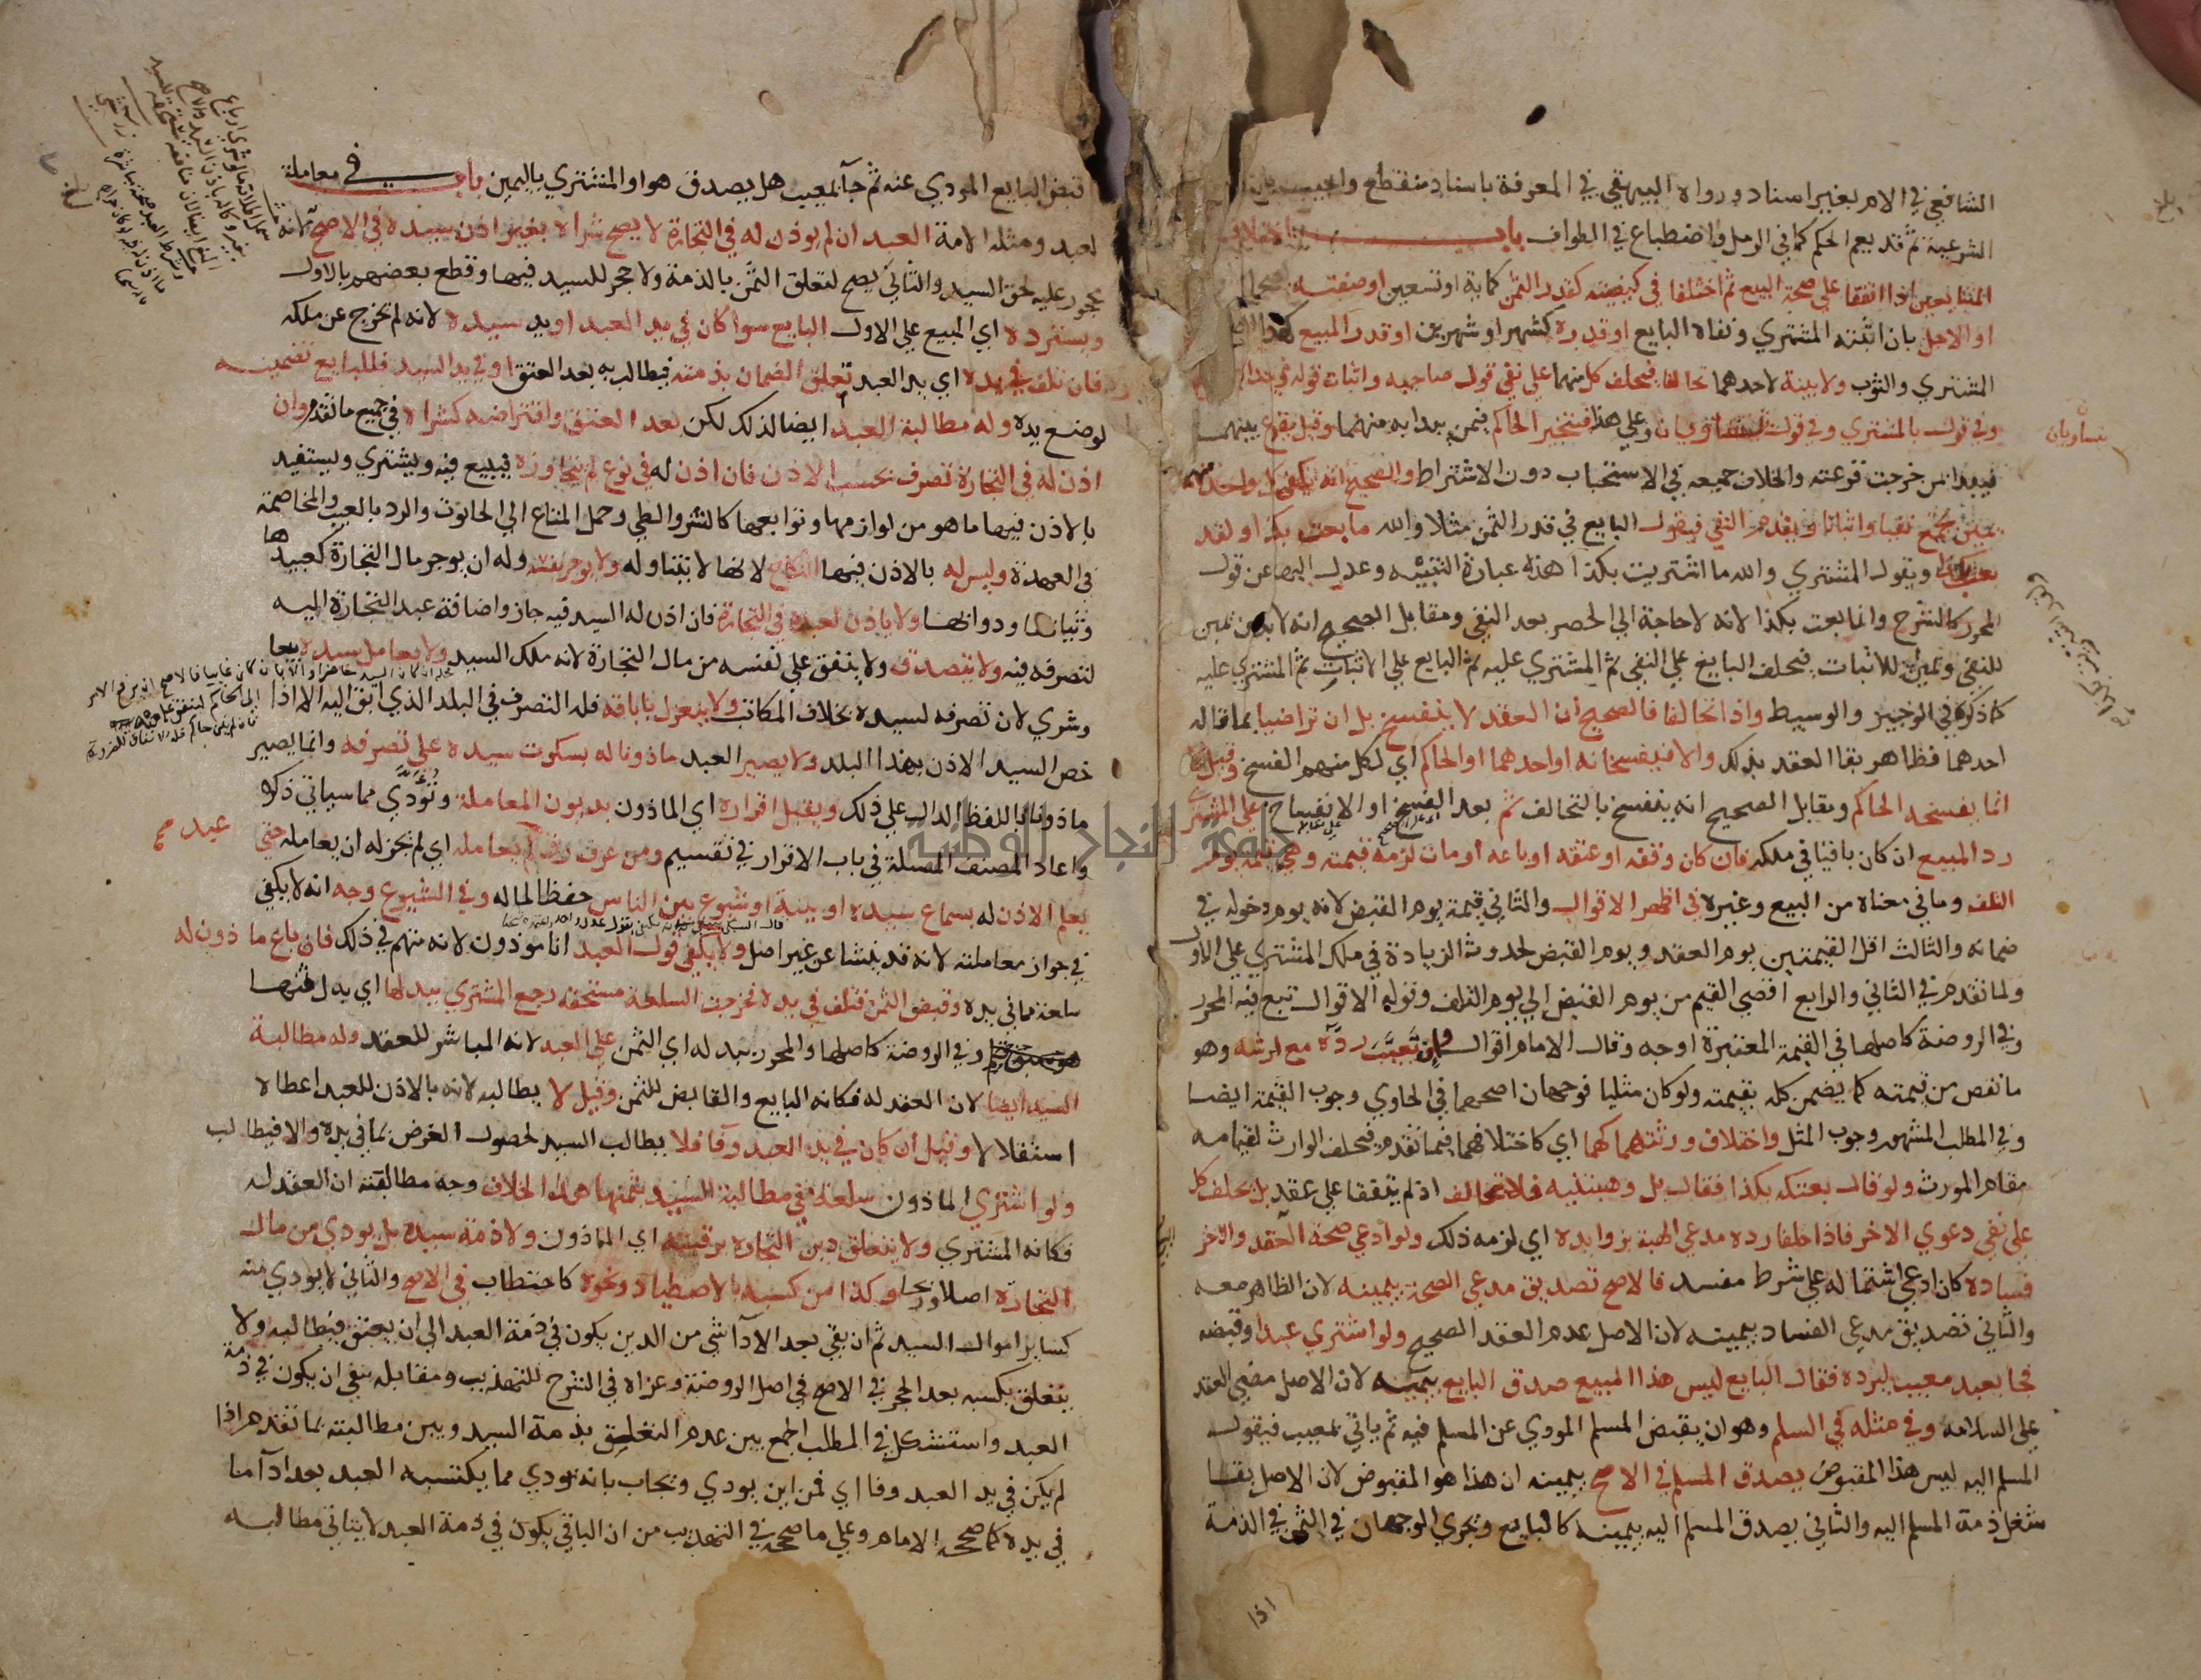 الشافعي في الام بغير اسناد ورواه البيهقي في المعرفة باسناد منقطع واجيب بان
الشرعية ثم قد يعم الحكم كما في الرمل واضطباع في الطواف باب اختلاف
المتبايعين اذا اتفقا على صحة البيع ثم اختلفا في كيفيته كقدر الثمن كماية او تسعين او صفته
او الاجل بان اثبته المشتري ونفاه البايع او قدره كشهر او شهرين او قدر المبيع
المشتري والثوب ولا بينة لاحدهما تحالفا فيحلف كل منهما على نفي قول صاحبه واثبات قوله
وفي قول بالمشتري وفي قول يتساويان وعلى هذا فيتخير الحاكم فيمن يبدا به منهما وقيل يقرع بينهما
يتساويان
فيبدا بمن خرجت قرعته والخلاف جميعه في الاستحباب دون الاشتراط والصحيح انه يكفي كل واحد منهما
يمين تجمع نفيا واثباتا ويقدم النفي فيقول البايع في قدر الثمن مثلا والله ما بعت بكذا ولقد
بعت بكذا ويقول المشتري والله ما اشتريت بكذا هذه عبارة التنبيه وعدل اليها عن قول
المحرر كالشرح وانما بعت بكذا لانه لا حاجة الى الحصر بعد النفي ومقابل الصحيح انه لا بد من يمين
للنفي ويمين للاثبات فيحلف البايع على النفي ثم المشتري عليه ثم البايع على الاثبات ثم المشتري عليه
كما ذكره في الوجيز والوسيط واذا تحالفا فالصحيح ان العقد لا ينفسخ بل ان تراضيا بما قاله
احدهما فظاهر بقا العقد بذلك والا فيفسخانه او احدهما او الحاكم اي لكل منهم الفسخ وقيل
انما يفسخه الحاكم ومقابل الصحيح انه ينفسخ بالتحالف ثم بعد الفسخ او الانفساخ على المشتري
رد المبيع ان كان باقيا في ملكه فان كان وقفه او عتقه او باعه او مات لزمه قيمته وهي قيمة يوم
التلف وما في معناه من البيع وغيره في اظهر الاقوال والثاني قيمة يوم القبض لانه يوم دخوله في
ضمانه والثالث اقل القيمتين يوم العقد ويوم القبض لحدوث الزيادة في ملك المشتري على الاول
ولما تقدم في الثاني والرابع اقصى القيم من يوم القبض الى يوم التلف وقوله الاقوال تبع فيه المحرر
وفي الروضة كاصلها في القيمة المعتبرة اوجه وقال الامام اقوال وان تعيب رده مع ارشه وهو
ما نقص من قيمته كما يضمن كله بقيمته ولو كان مثليا فوجهان اصحهما في الحاوي وجوب القيمة ايضا
وفي المطلب المشهور وجوب المثل واختلاف ورثتهما كهما اي كاختلافهما فيما تقدم فيحلف الوارث لقيامه
مقام المورث ولو قال بعتكه بكذا فقال بل وهبتنيه فلا تحالف اذ لم يتفقا على عقد بل يحلف كل
على نفي دعوي الاخر فاذا حلفا رده مدعي الهبة بزوايده اي لزمه ذلك ولو ادعي صحة العقد والاخر
فساده كان ادعي اشتماله على شرط مفسد فالاصح تصديق مدعي الصحة بيمينه لان الظاهر معه
والثاني تصديق مدعي الفساد بيمينه لان الاصل عدم العقد الصحيح ولو اشتري عبدا وقبضه
فجا بعبد معيب ليرده فقال البايع ليس هذا المبيع صدق البايع بيمينه لان الاصل مضي العقد
على السلامة وفي مثله في السلم وهو ان يقبض المسلم المودي عن المسلم فيه ثم ياتي بمعيب فيقول
المسلم اليه ليس هذا المقبوض يصدق المسلم في الاصح بيمينه ان هذا هو المقبوض لان الاصل بقا
شغل ذمة المسلم اليه والثاني يصدق المسلم اليه بيمينه كالبايع ويجري الوجهان في الثمن في الذمة
اذا
قبض البايع المودي عنه ثم جا بمعيب هل يصدق هو او المشتري باليمين باب في معاملة
لعبد ومثله الامة العبد ان لم يوذن له في التجارة لا يصح شراوه بغير اذن سيده في الاصح لانه
محجور عليه لحق السيد والثاني يصح لتعلق الثمن بالذمة ولا حجر للسيد فيها وقطع بعضهم بالاول
ويسترده اي المبيع على الاول البايع سوا كان في يد العبد او يد سيده لانه لم يخرج عن ملكه
فان تلف في يده اي يد العبد تعلق الضمان بذمته فيطالب به بعد العتق او في يد السيد فللبايع تضمينه
لوضع يده وله مطالبة العبد ايضا لذلك لكن بعد العتق واقتراضه كشراه في جميع ما تقدم وان
اذن له في التجارة تصرف بحسب الاذن فان اذن له في نوع لم يتجاوزه فيبيع فيه ويشتري ويستفيد
بالاذن فيها ما هو من لوازمها وتوابعها كالنشر والطي وحمل المتاع الى الحانوت والرد بالعيب والمخاصمة
في العهدة وليس له بالاذن فيها النكاح لانها لا تتناوله ولا يوجر نفسه وله ان يوجر مال التجارة كعبيدها
وثيابها ودوابها ولا ياذن لعبده في التجارة فان اذن له السيد فيه جاز واضافة عبد التجارة اليه
لتصرفه فيه ولا يتصدق ولا ينفق على نفسه من مال التجارة لانه ملك السيد ولا يعامل سيده بيعا
وشري لان تصرفه لسيده بخلاف المكاتب ولا ينعزل باباقه فله التصرف في البلد الذي ابق اليه الا اذا
خص السيد الاذن بهذا البلد ولا يصير العبد ماذونا له بسكوت سيده على تصرفه وانما يصير
ماذونا باللفظ الدال على ذلك ويقبل اقراره اي الماذون بديون المعاملة وتودي مما سياتي ذكره
واعاد المصنف المسئلة في باب الاقرار في تقسيم ومن عرف رق لم يعامله اي لم يجز له ان يعامله حتى
عبد صح
يعلم الاذن له بسماع سيده او بينة او شيوع بين الناس حفظا لماله وفي الشيوع وجه انه لا يكفي
في جواز معاملته لانه قد ينشا عن غير اصل ولا يكفي قول العبد انا موذون لانه متهم في ذلك فان باع ماذون له
سلعة مما في يده وقبض الثمن فتلف في يده فخرجت السلعة مستحقة رجع المشتري ببدلها اي بدل ثمنها
وفي الروضة كاصلها والمحرر ببدله اي الثمن على العبد لانه المباشر للعقد وله مطالبة
السيد ايضا لان العقد له فكانه البايع والقابض للثمن وقيل لا يطالبه لانه بالاذن للعبد اعطاه
استقلالا وقيل ان كان في يد العبد وفا فلا يطالب السيد لحصول الغرض بما في يده والا فيطالب
ولو اشتري الماذون سلعة ففي مطالبة السيد بثمنها هذا الخلاف وجه مطالبته ان العقد له
فكانه المشتري ولا يتعلق دين التجارة برقبته اي الماذون ولا ذمة سيده بل يودي من مال
التجارة اصلا وربحا وكذا من كسبه بالاصطياد ونحوه كاحتطاب في الاصح والثاني لا يودي منه
كساير اموال السيد ثم ان بقي بعد الادا شي من الدين يكون في ذمة العبد الى ان يعتق فيطالبه ولا
يتعلق بكسبه بعد الحجر في الاصح في اصل الروضة وعزاه في الشرح للتهذيب ومقابله نفي ان يكون في ذمة
العبد واستشكل في المطلب الجمع بين عدم التعلق بذمة السيد وبين مطالبته بما تقدم اذا
لم يكن في يد العبد وفا اي فمن اين يودي ويجاب بانه يودي مما يكتسبه العبد بعد ادا ما
في يده كما صححه الامام وعلى ما صححه في التهذيب من ان الباقي يكون في ذمة العبد لا يتاتي مطالبته